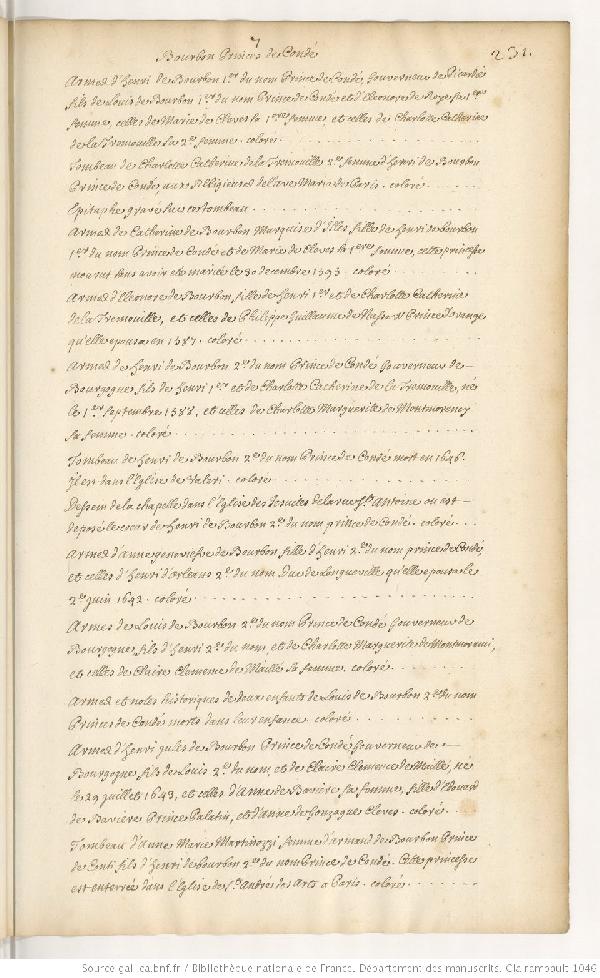 7
Bourbon Princes de Condé
231.
Armes d'henri de Bourbon 1er du nom Prince de Condé, Gouverneur de Picardie
fils de Louis de Bourbon 1er du nom Prince de Condé et d'Eleonore de Roye sa 1ere
femme, celles de Marie de Cleves sa 1ere femme, et celles de Charlotte Catherine
de la Tremouille sa 2e femme. coloré
Tombeau de Charlotte Catherine de la Tremouille 2e femme d'henri de Bourbon
Prince de Condé, aux Religieuses de l'ave Maria de Paris. coloré
Epitaphe gravé sur ce tombeau
Armes de Catherine de Bourbon Marquise d'Isles, fille de henri de bourbon
1er du nom Prince de Condé et de Marie de Cleves sa 1ere femme, cette princesse
mourut sans avoir été mariée le 30 decembre 1595. coloré
Armes d'Eleonore de Bourbon, fille de henri 1er et de Charlotte Catherine
de la Tremouille, et celles de Philippe Guillaume de Nassau Prince d'orange
qu'elle epousa en 1587. coloré
Armes de henri de Bourbon 2e du nom Prince de Condé Gouverneur de
Bourgogne, fils de henri 1er et de Charlotte Catherine de la Tremouille, né
le 1er septembre 1588, et celles de Charlotte Marguerite de Montmorency
sa femme. coloré
Tombeau de henri de Bourbon 2e du nom Prince de Condé mort en 1646.
Il est dans l'Eglise de Valeri. coloré
Dessein de la chapelle dans l'Eglise des Jesuites de la rue St. Antoine ou est
deposé le coeur de henri de Bourbon 2e du nom prince de Condé. coloré
Armes d'anne genevieve de Bourbon, fille d'henri 2e du nom prince de Condé,
et celles d'henri d'orleans 2e du nom Duc de Longueville qu'elle epousa le
2e juin 1642. coloré
Armes de Louis de Bourbon 2e du nom Prince de Condé Gouverneur de
Bourgogne, fils d'henri 2e du nom, et de Charlotte Marguerite de Montmorenci,
et celles de Claire Clemence de Maillé sa femme. coloré
Armes et notes historiques de deux enfants de Louis de Bourbon 2e du nom
Princes de Condé morts dans leur enfance. coloré
Armes d'henri jules de Bourbon Prince de Condé Gouverneur de
Bourgogne, fils de Louis 2e du nom, et de Claire Clemence de Maillé, né
le 29 juillet 1643, et celles d'Anne de Baviere sa femme, fille d'Edouard
de Baviere Prince Palatin, et d'anne de Gonzague Cleves. coloré
Tombeau d'Anne Marie Martinozzi, femme d'armand de Bourbon Prince
de Conti fils d'henri de bourbon 2e du nom Prince de Condé. Cette princesse
est enterrée dans l'Eglise de St. André des Arts a Paris. coloré
Source gallica.bnf.fr / Bibliothèque nationale de France. Département des manuscrits. Clairambault 1046